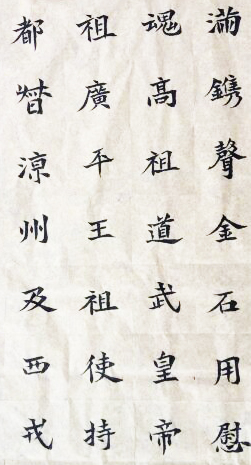 瀰鐫聲金石用慰
魂高祖道武皇帝
祖廣平王祖使持
都督涼州及西戎